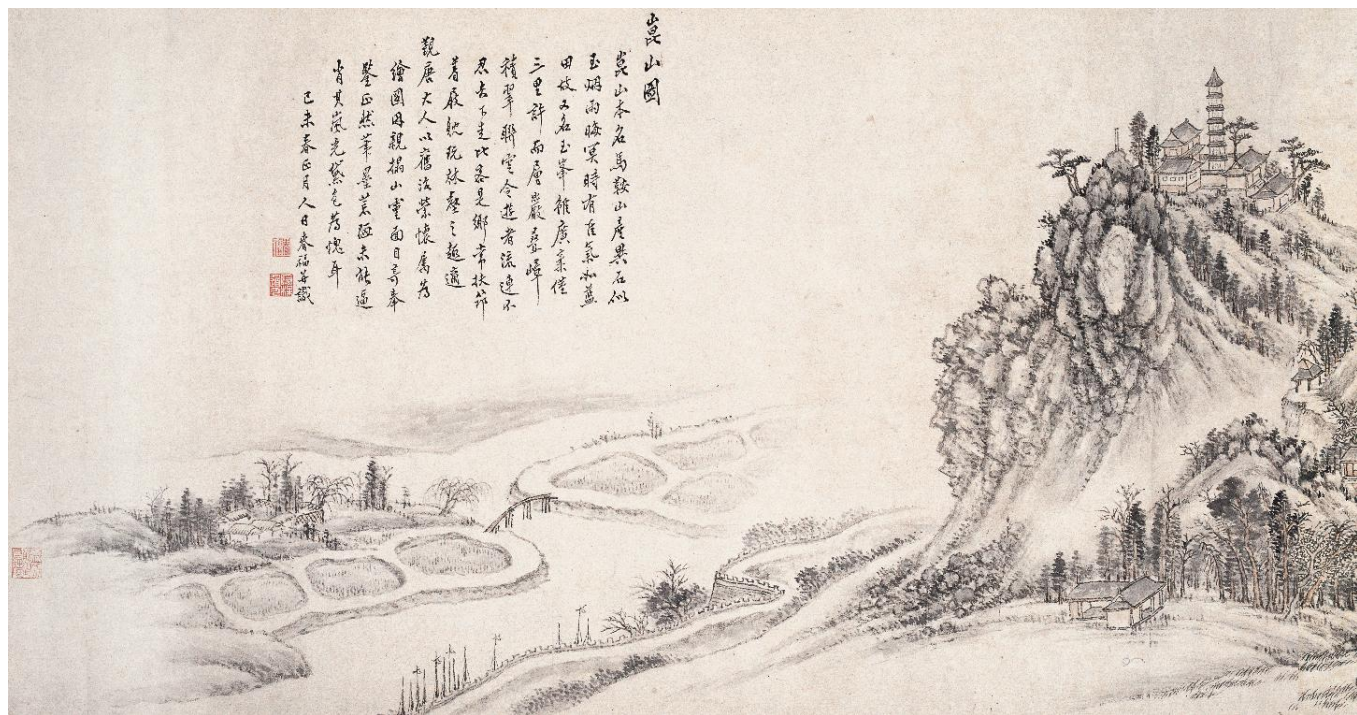 崑山圖
崑山本名馬鞍山產異石似
玉烟雨晦冥時有佳氣如藍
田故又名玉峯雖廣袤僅
三里許而層巖疊嶂
積翠聯雲令遊者流連不
忍去下走比客是鄉常扶筇
着屐躭玩林壑之趣適
覲唐大人以舊治縈懷屬為
繪圖因親搨山靈面目寄奉
鑒正然筆墨荒陋未能逼
肖其嵐光黛色為愧耳
己未春正月人日春福并識